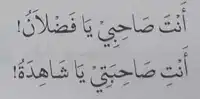 أَنْتَ صَاحِبِيْ يَا فَضْلَانُ!
أَنْتِ صَاحِبَتِيْ يَا شَاهِدَةُ!